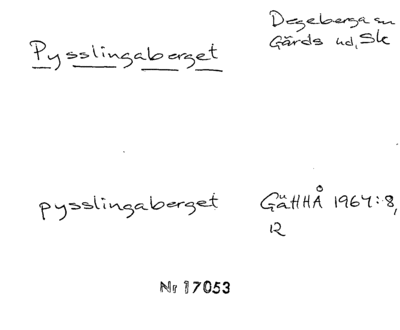 Pysslingaberget
Degeberga sn
Gärds hd, Sk
pysslingaberget
GäHHÅ 1967:8,
12
Nr 17053